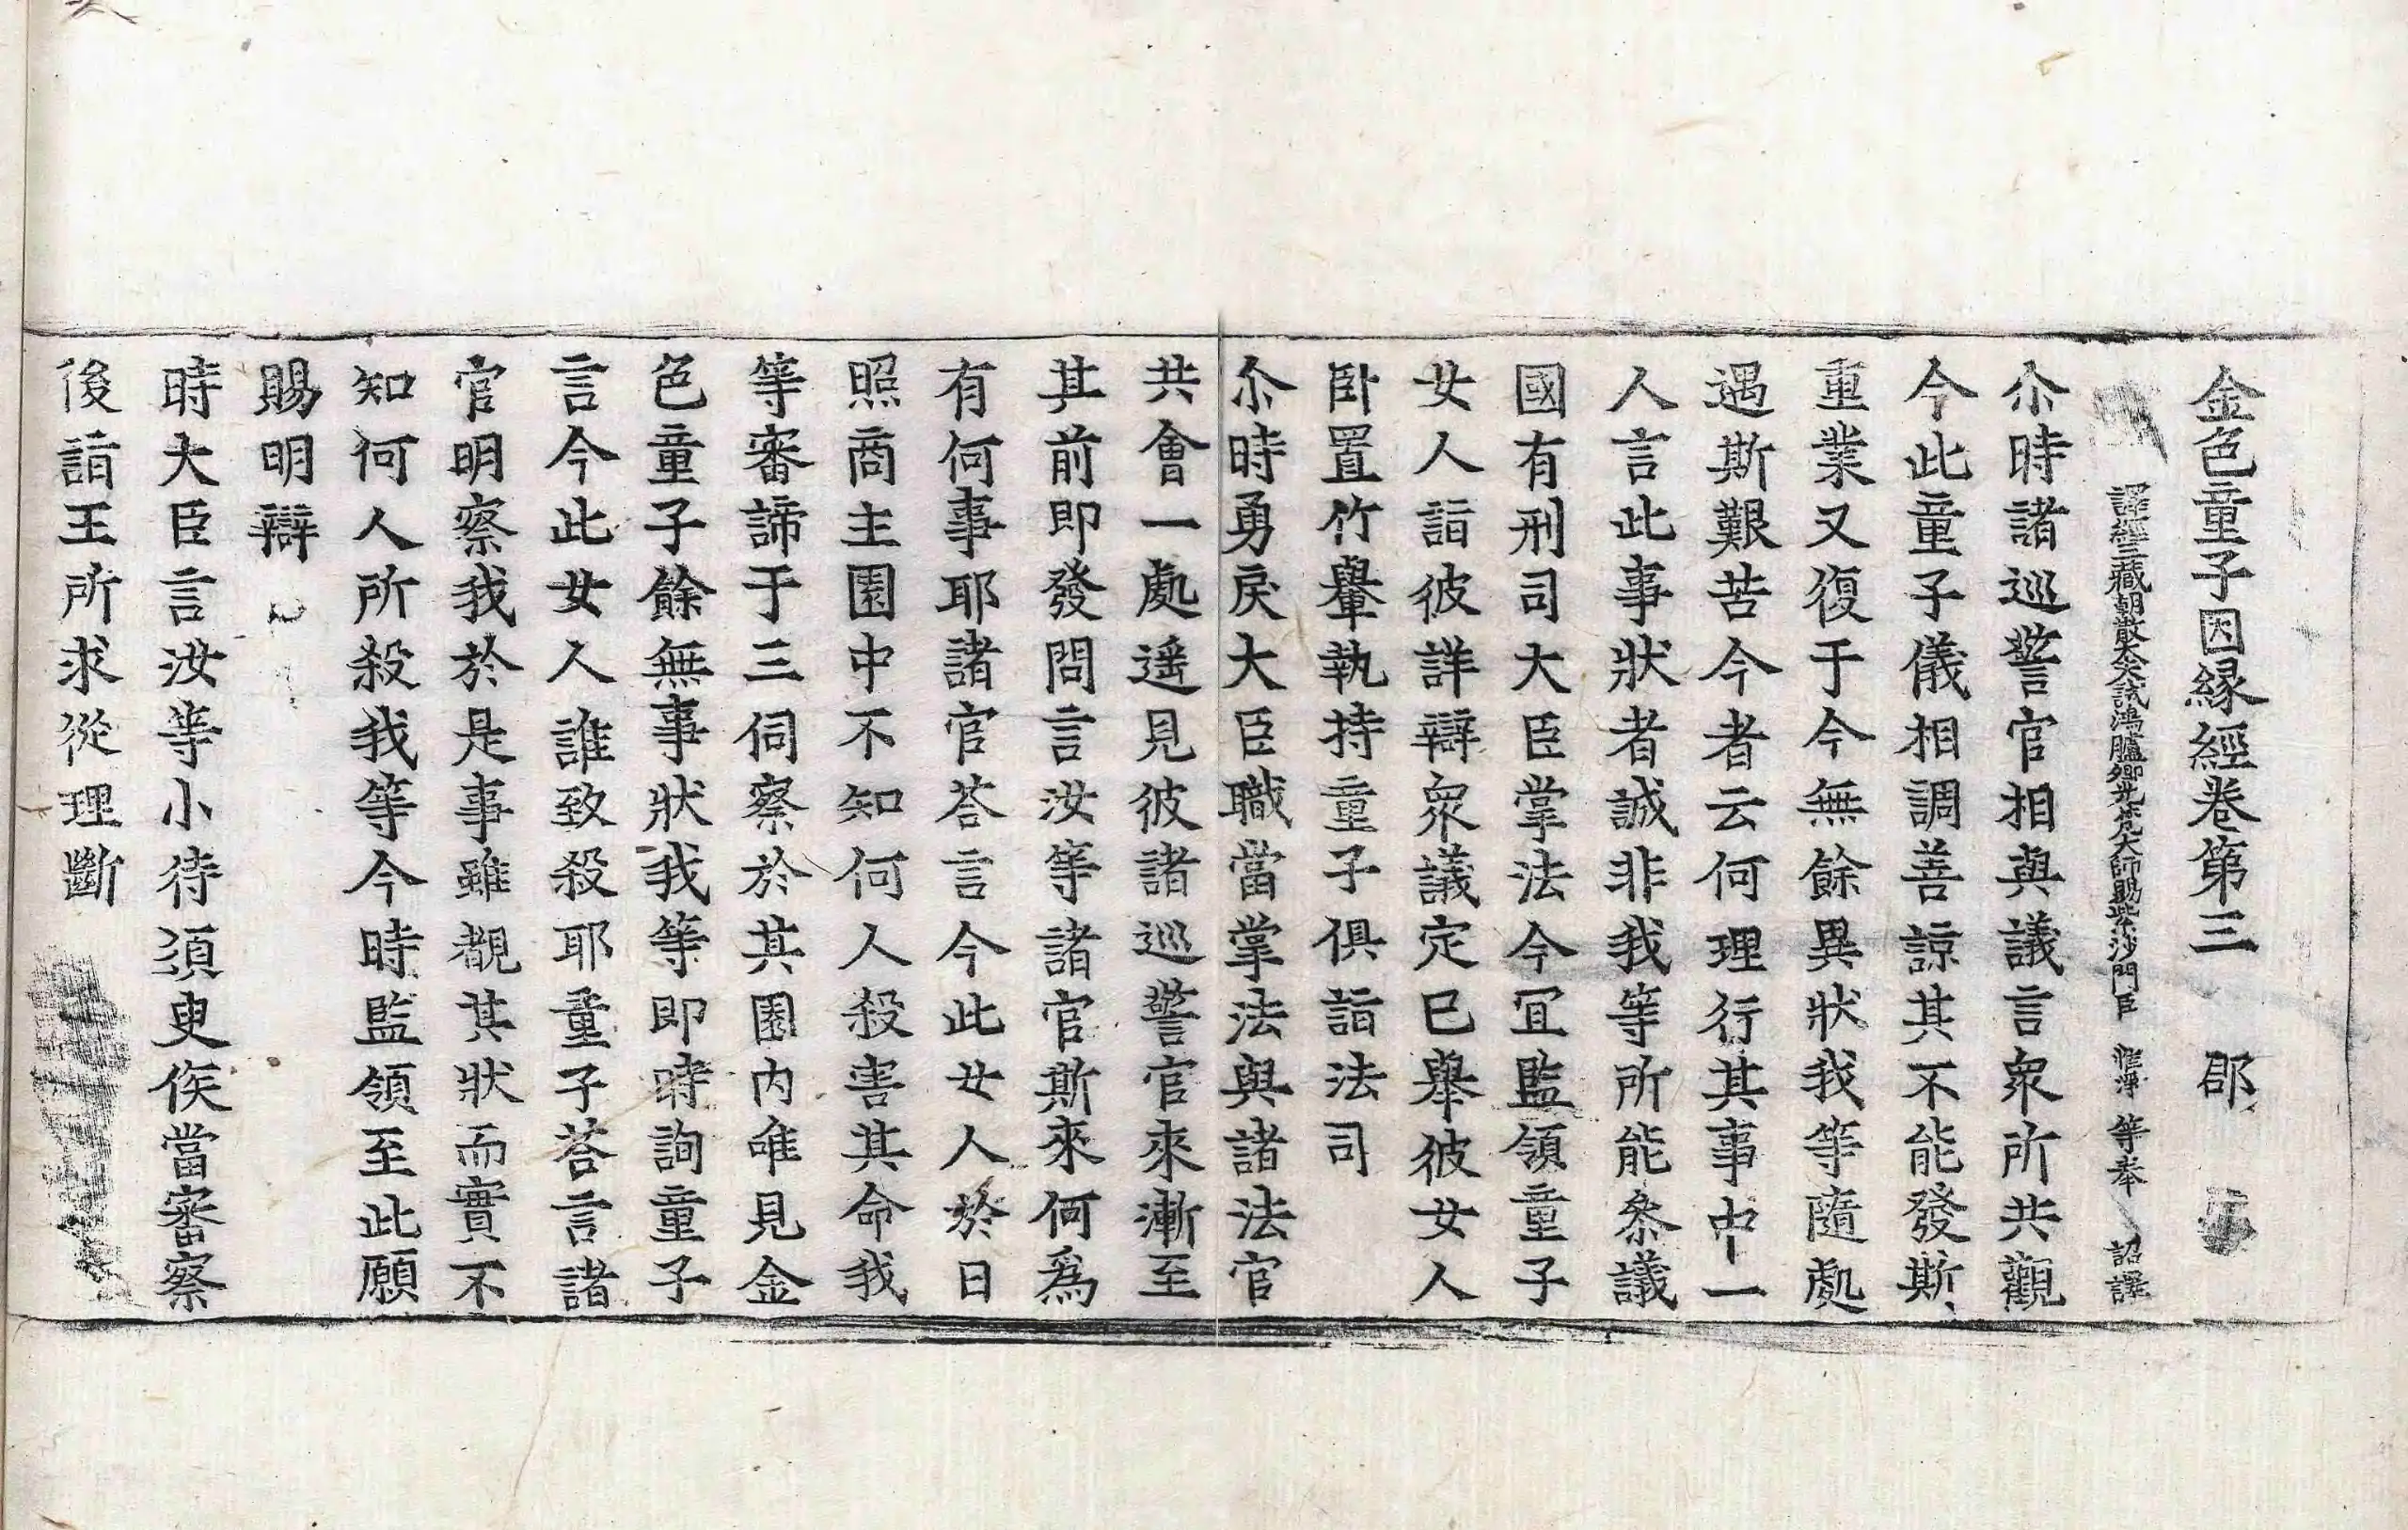 金色童子因緣經卷第三 郡
譯經三藏朝散大夫試鴻臚卿光梵大師賜紫沙門臣惟淨等奉 詔譯
尒時諸巡警官相與議言衆所共觀
今此童子儀相調善諒其不能發斯
重業又復于今無餘異狀我等隨處
遇斯艱苦今者云何理行其事中一
人言此事狀者誠非我等所能叅議
國有刑司大臣掌法今冝監領童子
女人詣彼詳辯衆議定已舉彼女人
卧置竹轝執持童子俱詣法司
尒時勇戾大臣職當掌法與諸法官
共會一處遥見彼諸巡警官來漸至
其前即發問言汝等諸官斯來何爲
有何事耶諸官荅言今此女人於日
照商主園中不知何人殺害其命我
等審諦于三伺察於其園內唯見金
色童子餘無事狀我等即時詢童子
言今此女人誰致殺耶童子荅言諸
官明察我於是事雖覩其狀而實不
知何人所殺我等今時監領至此願
賜明辯
時大臣言汝等小待須臾俟當審察
後詣王所求從理斷